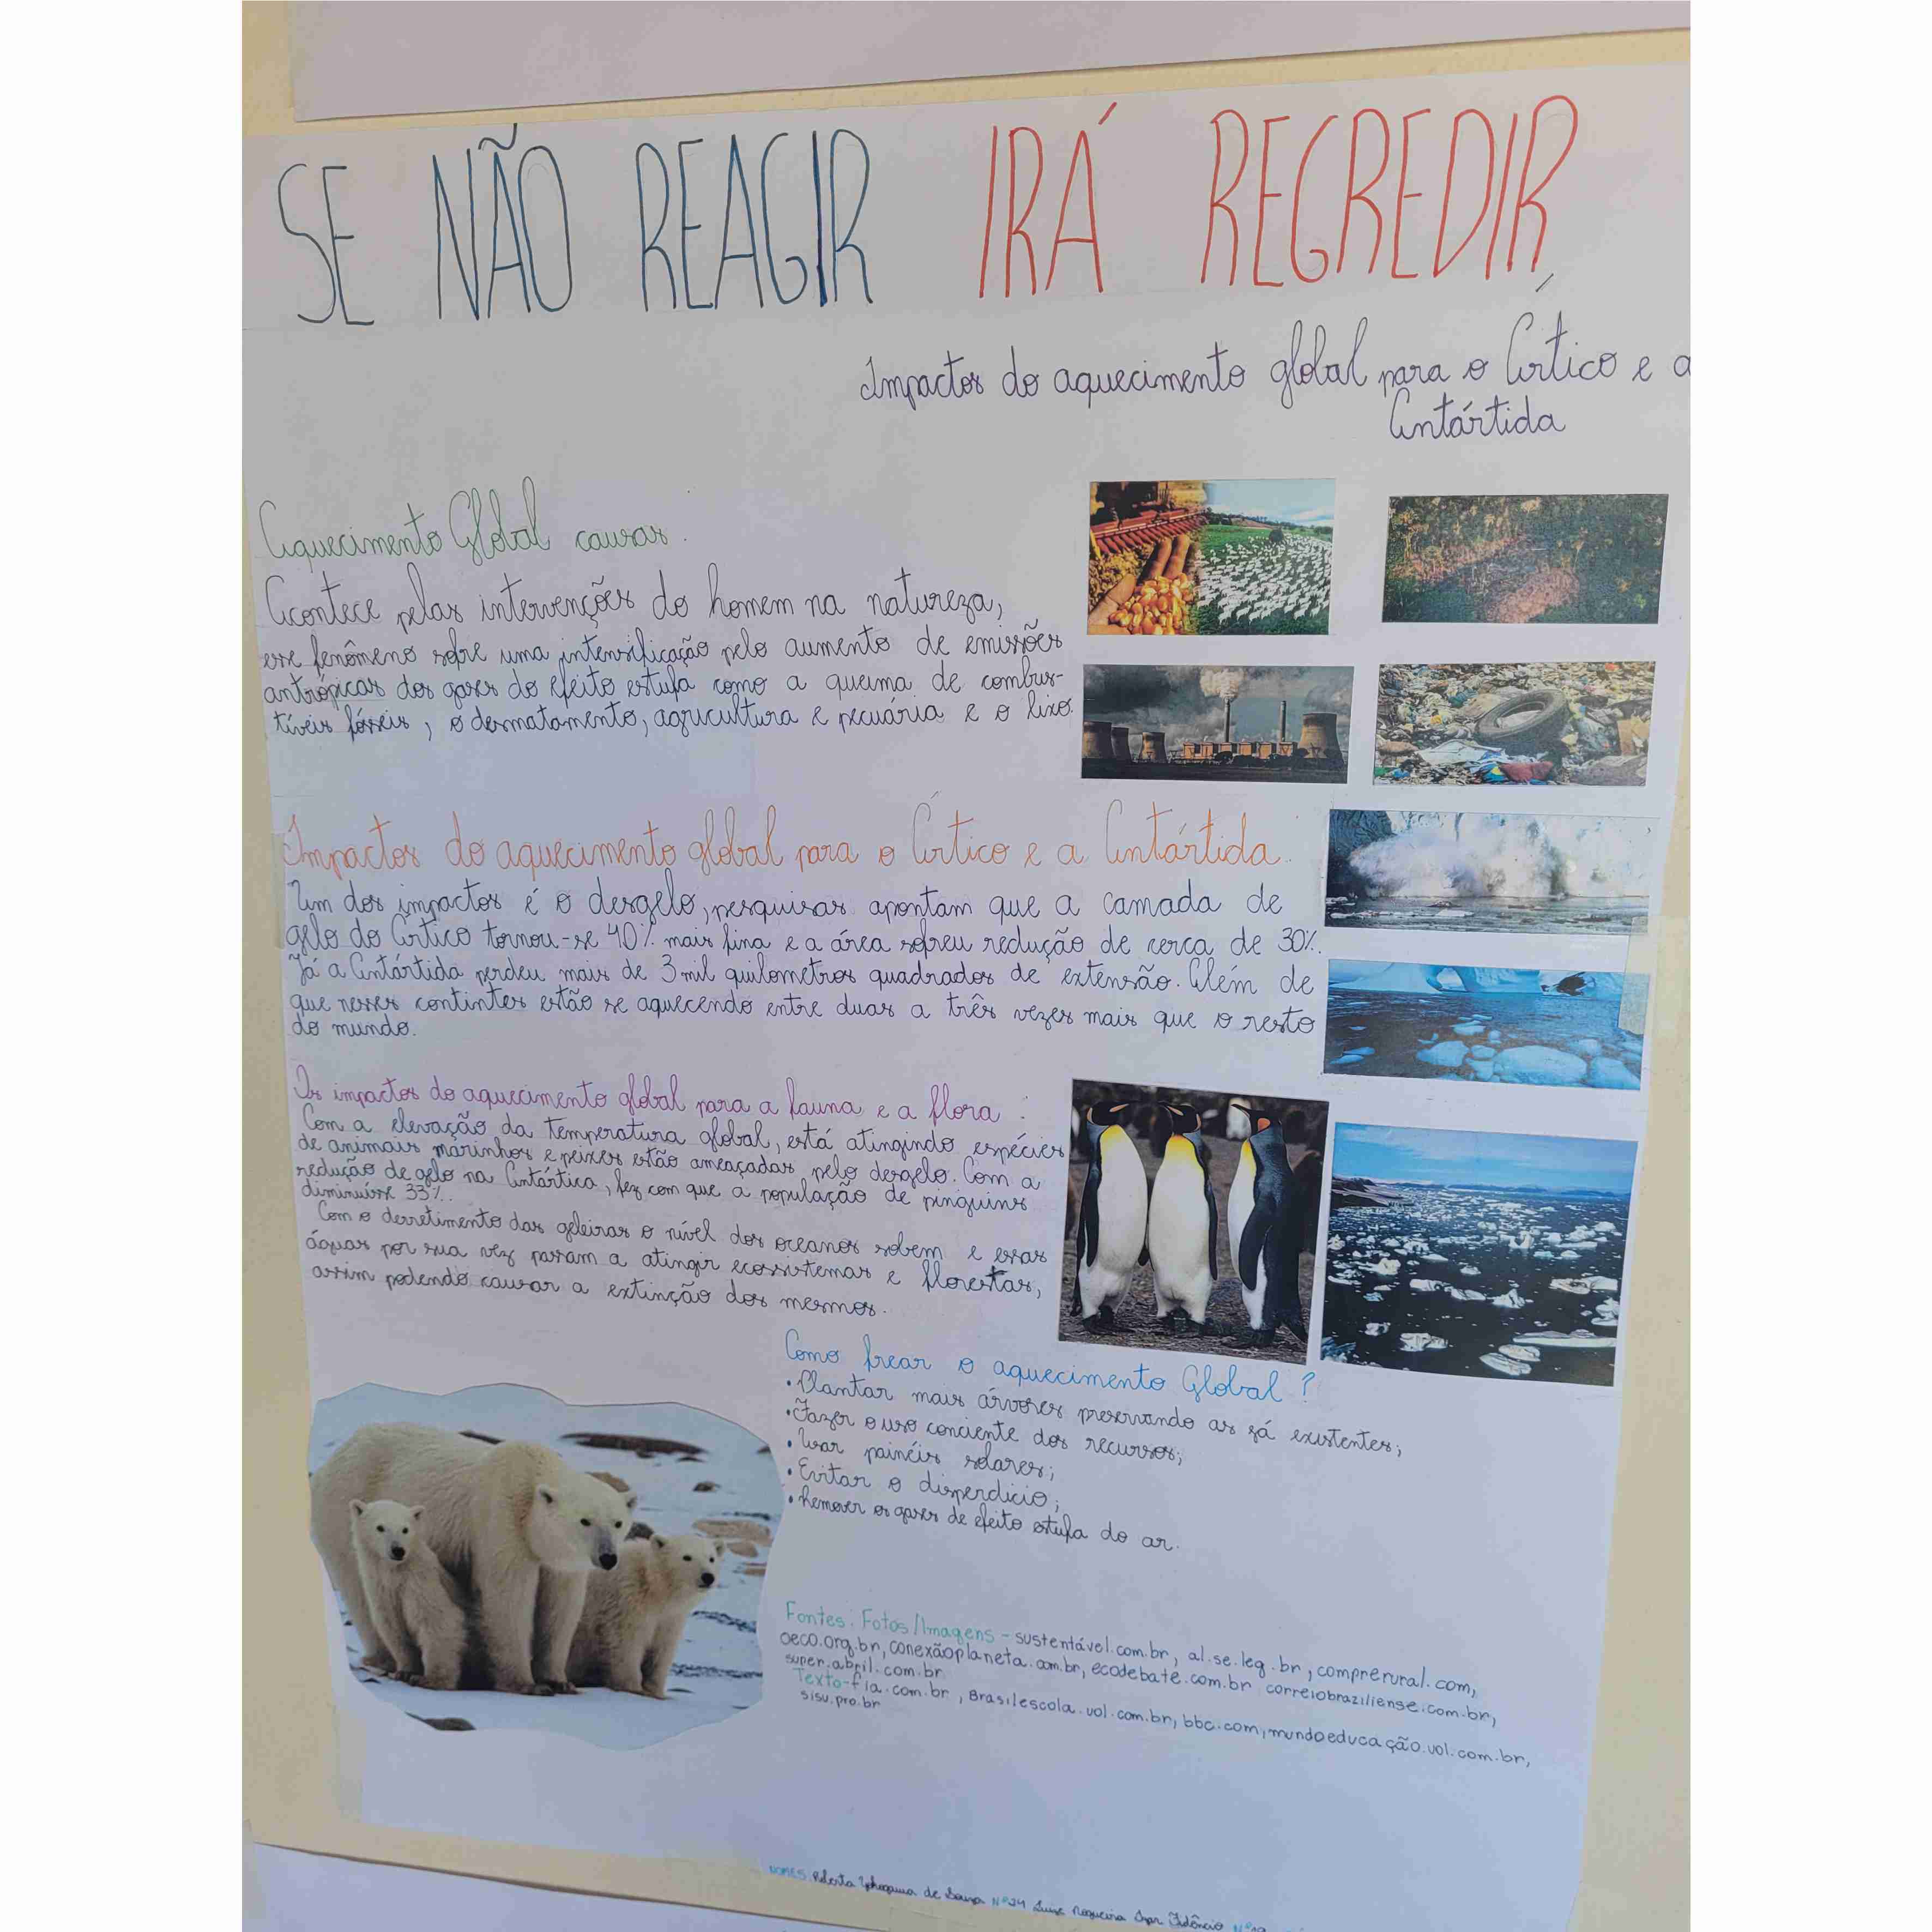 SE NÃO REAGIR IRÁ REGREDIR
Impactos do aquecimento global para o Ártico e a
Antártida
Aquecimento Global causas.
Acontece pelas intervenções do homem na natureza,
esse fenômeno sofre uma intensificação pelo aumento de emissões
antrópicas dos gases do efeito estufa como a queima de combus-
tíveis fósseis, o desmatamento, agricultura e pecuária e o lixo.
Impactos do aquecimento global para o Ártico e a Antártida:
Um dos impactos é o desgelo, pesquisas apontam que a camada de
gelo do Ártico tornou-se 40% mais fina e a área sofreu redução de cerca de 30%.
Já a Antártida perdeu mais de 3 mil quilometros quadrados de extensão. Além de
que nesses contintes estão se aquecendo entre duas a três vezes mais que o resto
do mundo.
Os impactos do aquecimento global para a fauna e a flora:
Com a elevação da temperatura global, está atingindo espécies
de animais marinhos e peixes estão ameaçadas pelo desgelo. Com a
redução de gelo na Antártica, fez com que a população de pinguins
diminuisse 33%.
Com o derretimento das geleiras o nível dos oceanos sobem e essas
águas por sua vez passam a atingir ecossistemas e florestas,
assim podendo causar a extinção dos mesmos.
Como frear o aquecimento Global?
•Plantar mais árvores preservando as já existentes;
•Fazer o uso conciente dos recursos;
•Usar painéis solares;
•Evitar o disperdicio;
•Remover os gases de efeito estufa do ar.
Fontes: Fotos/Imagens - sustentável.com.br, al.se.leg.br, comprerural.com,
oeco.org.br, conexãoplaneta.com.br, ecodebate.com.br correiobraziliense.com.br,
super.abril.com.br
Texto-fia.com.br, Brasilescola.uol.com.br, bbc.com, mundoeducação.uol.com.br,
sisu.pro.br
NOMES: Roberta de Souza Nº24 Nogueira